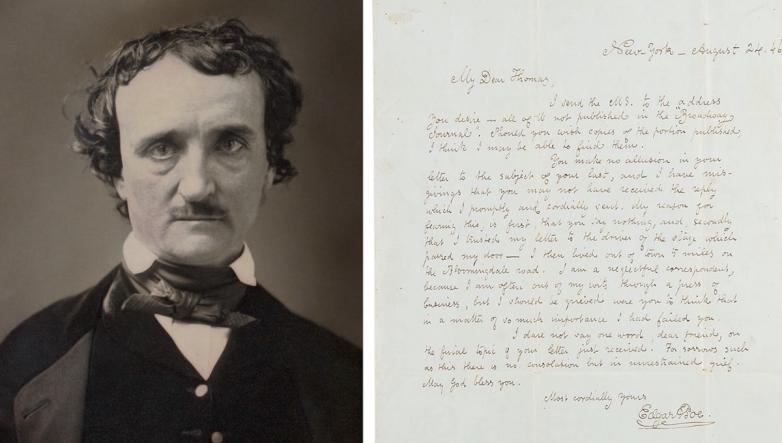 New-York — August 24. 46
My Dear Thomas,
I send the M.S. to the address
you desire — all of it not published in the "Broadway
Journal". Should you wish copies of the portion published,
I think I may be able to find them.
You make no allusion in your
letter to the subject of your last, and I have mis-
givings that you may not have received the reply
which I promptly and cordially sent. My reason for
fearing this, is first, that you say nothing, and, secondly
that I trusted my letter to the driver of the stage which
passed my door — I then lived out of town 5 miles on
the Bloomingdale road. I am a neglectful correspondent,
because I am often out of my wits through a press of
business, but I should be grieved were you to think that
in a matter of so much importance I had failed you.
I dare not say one word, dear friend, on
the final topic of your letter just received. For sorrows such
as this there is no consolation but in unrestrained grief.
May God bless you.
Most cordially yours
Edgar A Poe.